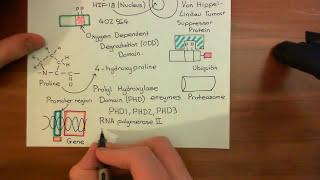 HIF-1β (Nucleus)
Von Hippel-
Lindau Tumour
Suppressor
Protein
402 564
Oxygen Dependent
Degradation (ODD)
Domain
4-hydroxyproline
Ubiquitin
Proline
Prolyl Hydroxylase
Domain (PHD) enzymes
Proteasome
Promoter region
PHD1, PHD2, PHD3
RNA polymerase II
Gene